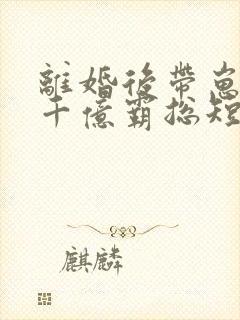 離婚後帶崽
千億霸總短
麒麟